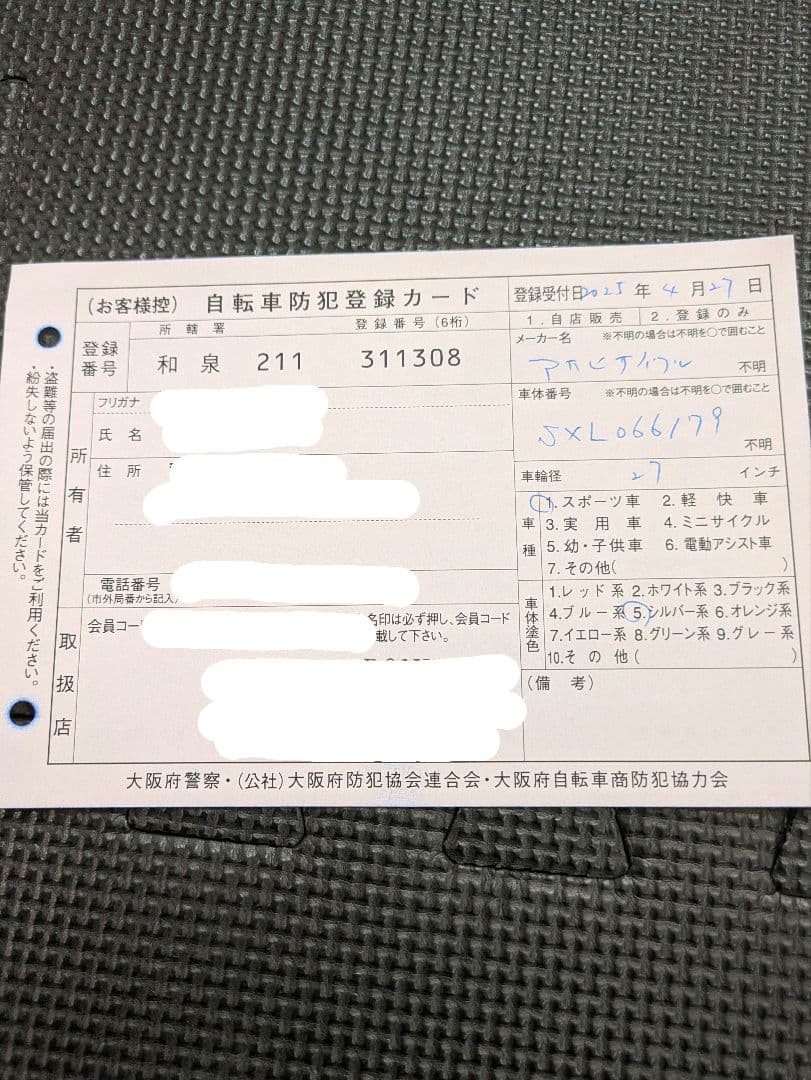 (お客様控) 自転車防犯登録カード
登録受付日 2025 年 4 月 27 日
1.自店販売 2.登録のみ
登録番号
所轄署 登録番号(6桁)
和泉 211 311308
メーカー名 ※不明の場合は不明を○で囲むこと
アサヒサイクル 不明
車体番号 ※不明の場合は不明を○で囲むこと
SXL066179 不明
車輪径 27 インチ
所有者
フリガナ
氏名
住所
電話番号
(市外局番から記入)
車種
1.スポーツ車 2.軽快車
3.実用車 4.ミニサイクル
5.幼・子供車 6.電動アシスト車
7.その他( )
車体塗色
1.レッド系 2.ホワイト系 3.ブラック系
4.ブルー系 5.シルバー系 6.オレンジ系
7.イエロー系 8.グリーン系 9.グレー系
10.その他( )
(備考)
取扱店
会員コー
名印は必ず押し、会員コード
載して下さい。
大阪府警察・(公社)大阪府防犯協会連合会・大阪府自転車商防犯協力会
・盗難等の届出の際には当カードをご利用ください。
・紛失しないよう保管してください。